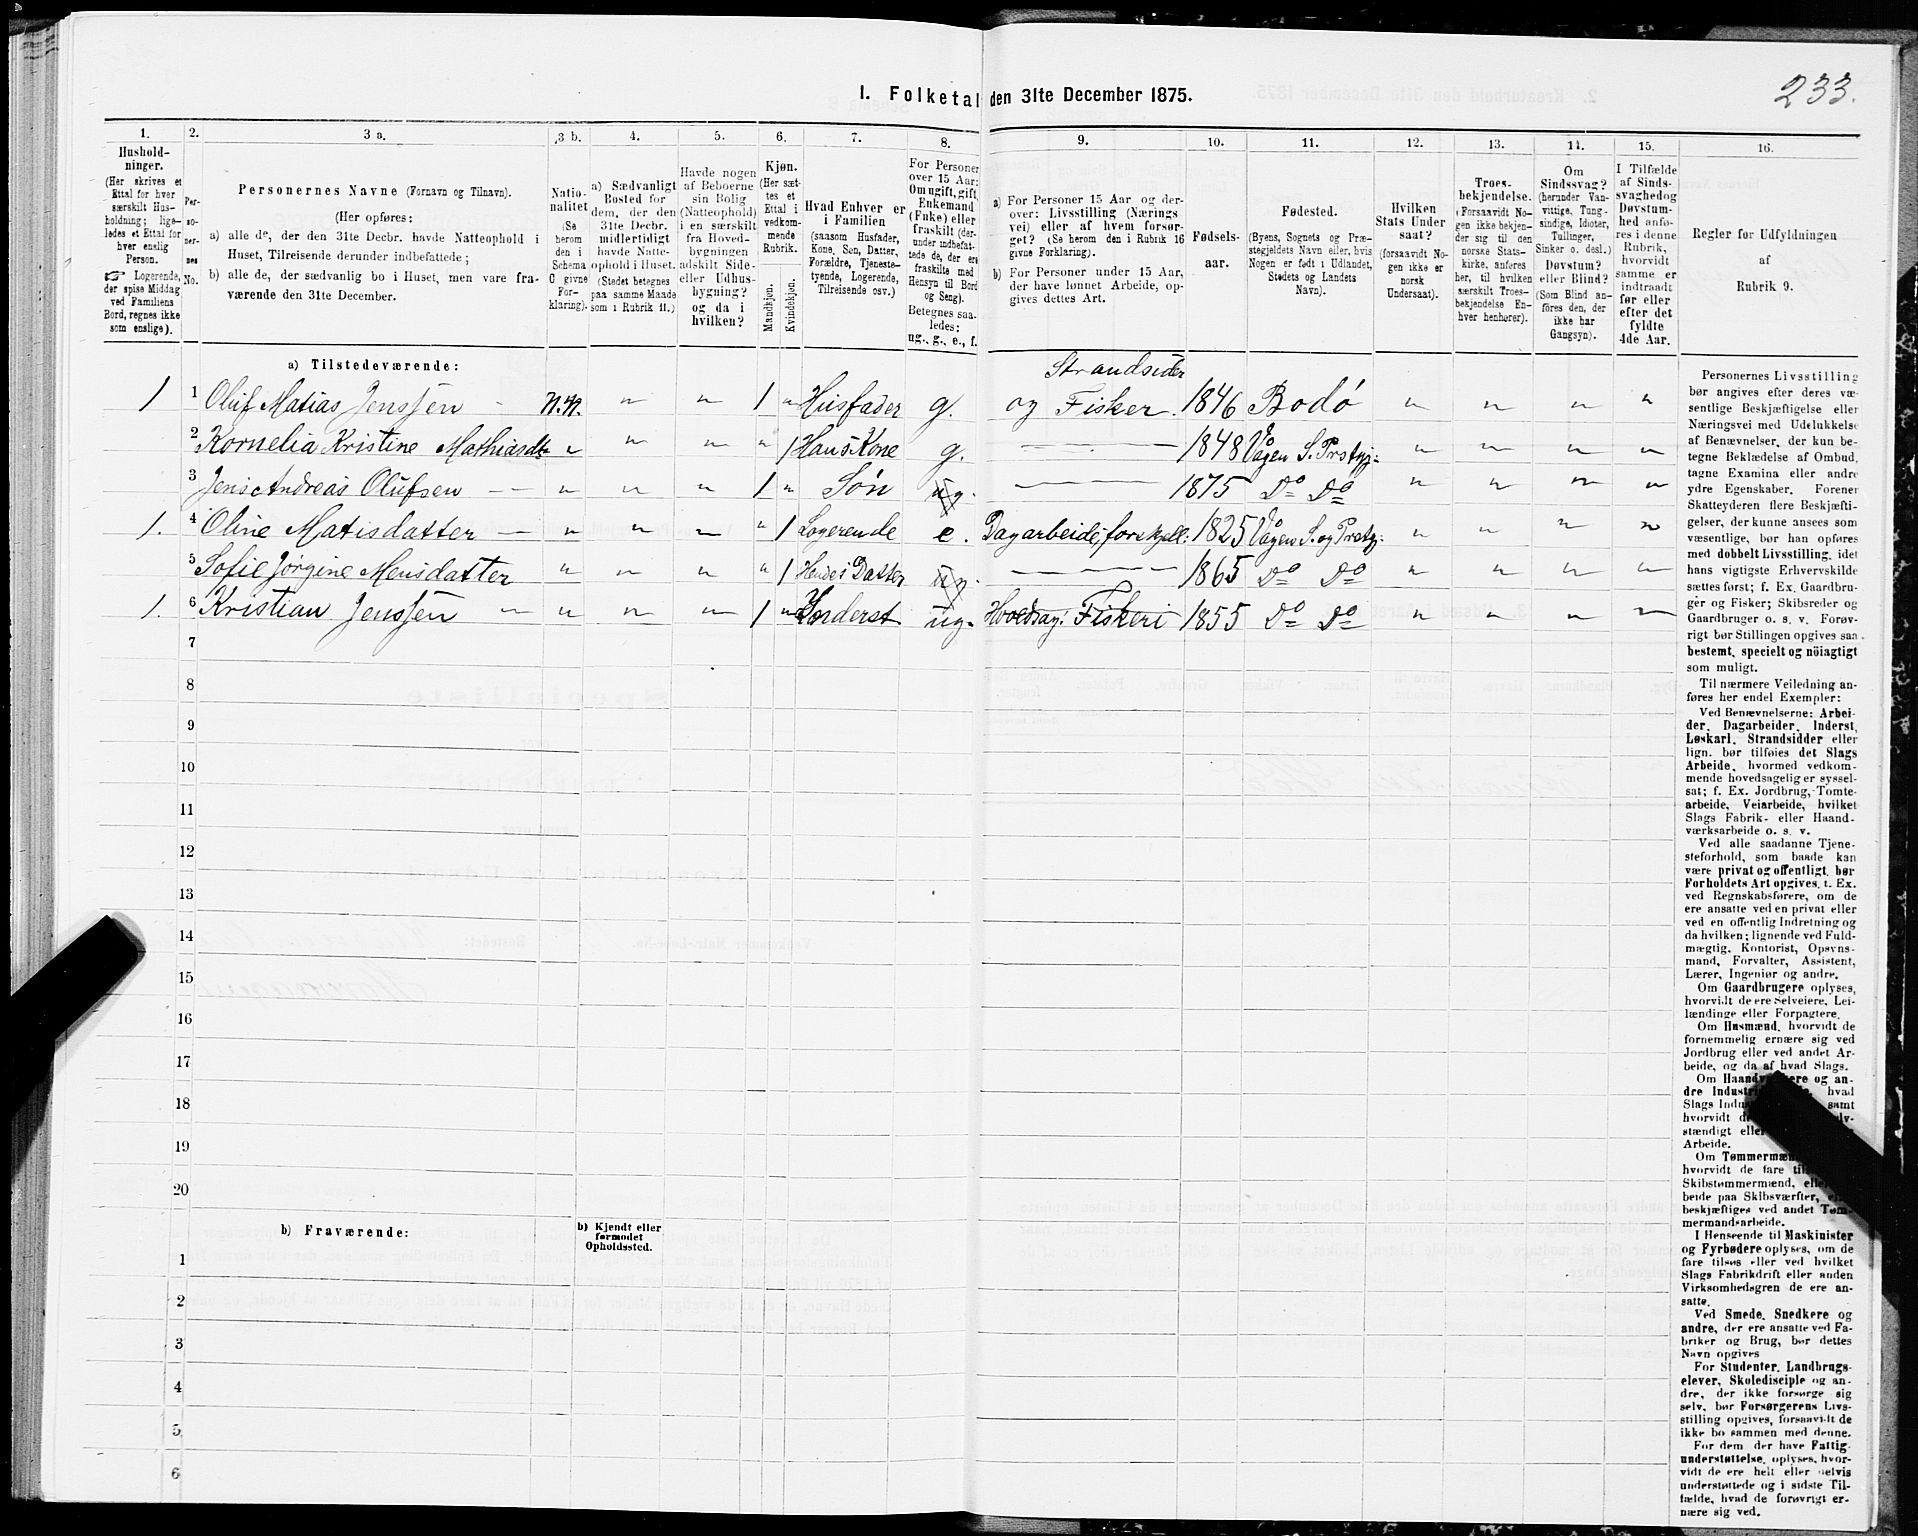 233.
I. Folketal den 31te December 1875.
1. 2. 3 a. 3 b. 4. 5. 6. 7. 8. 9. 10. 11. 12. 13. 14. 15. 16.
Hushold-
ninger.
(Her skrives et
Ettal for hver
særskilt Hus-
holdning; lige-
ledes et Ettal for
hver enslig
Person.
☞ Logerende,
der spise Middag
ved Familiens
Bord, regnes ikke
som enslige).
Per-
so-
ner-
nes
No.
Personernes Navne (Fornavn og Tilnavn).
(Her opføres:
a) alle de, der den 31te Decbr. havde Natteophold i
Huset, Tilreisende derunder indbefattede;
b) alle de, der sædvanlig bo i Huset, men vare fra-
værende den 31te December.
Natio-
nalitet
(Se
herom
den i
Schema
C givne
For-
klaring).
a) Sædvanligt
Bosted for
dem, der den
31te Decbr.
midlertidigt
havde Natte-
ophold i Huset.
(Stedet betegnes
paa samme Maade
som i Rubrik 11.)
Havde nogen
af Beboerne
sin Bolig
(Natteophold)
i en særskilt
fra Hoved-
bygningen
adskilt Side-
eller Udhus-
bygning?
og da i
hvilken?
Kjøn.
(Her sæt-
tes et
Ettal i
vedkom-
mende
Rubrik.
Mandkjøn.
Kvindekjøn.
Hvad Enhver er
i Familien
(saasom Husfader,
Kone, Søn, Datter,
Forældre, Tjeneste-
tyende, Logerende,
Tilreisende osv.)
For Personer
over 15 Aar:
Om ugift, gift,
Enkemand
(Enke) eller
fraskilt (der-
under indbefat-
tede de, der ere
fraskilte med
Hensyn til Bord
og Seng).
Betegnes saa-
ledes:
ug., g., e., f.
a) For Personer 15 Aar og der-
over: Livsstilling (Nærings
vei) eller af hvem forsør-
get? (Se herom den i Rubrik 16
givne Forklaring).
b) For Personer under 15 Aar,
der have lønnet Arbeide, op-
gives dettes Art.
Fødsels-
aar.
Fødested.
(Byens, Sognets og Præ-
stegjeldets Navn eller, hvis
Nogen er født i Udlandet,
Stedets og Landets
Navn).
Hvilken
Stats Under
saat?
(forsaavidt No-
gen ikke er
norsk
Undersaat).
Troes-
bekjendelse.
(Forsaavidt No-
gen ikke bekjen-
der sig til den
norske Stats-
kirke, anføres
her, til hvilken
særskilt Troes-
bekjendelse En-
hver henhører).
Om
Sindssvag?
(herunder Van-
vittige, Tung-
sindige, Idioter,
Tullinger,
Sinker o. desl.)
Døvstum?
eller Blind?
(Som Blind an-
føres den, der
ikke har
Gangsyn).
I Tilfælde
af Sinds-
svaghed og
Døvstum-
hed anfø-
res i denne
Rubrik,
hvorvidt
samme er
indtraadt
før eller
efter det
fyldte
4de Aar.
Regler for Udfyldningen
af
Rubrik 9.
a) Tilstedeværende:
1 1 Oluf Matias Jenssen - N.N. " " 1 " Husfader g. Strandsider og Fisker. 1846 Bodø " " " "
2 Kornelia Kristine Mathiasdtr " " " " 1 Hans Kone g. — 1848 Vågen S. Prstgj: " " " "
3 Jens Andreas Olufsen — " " " 1 " Søn ug. — 1875 Do Do " " " "
1. 4 Oline Matisdatter — " " " " 1 Logerende e. Dagarbeide, forskjell: 1825 Vågen S. og Prstgj: " " " "
5 Sofie Jørgine Mensdatter " " " " 1 Hendes Datter ug. — 1865 Do Do " " " "
1. 6 Kristian Jenssen — " " " 1 " Inderst ug. Hovedsag: Fiskeri 1855 Do Do " " " "
7
8
9
10
11
12
13
14
15
16
17
18
19
20
b) Fraværende:
b) Kjendt eller
formodet
Opholdssted.
1
2
3
4
5
6
Personernes Livsstilling
bør angives efter deres væ-
sentlige Beskjæftigelse eller
Næringsvei med Udelukkelse
af Benævnelser, der kun be-
tegne Beklædelse af Ombud,
tagne Examina eller andre
ydre Egenskaber. Forener
Skatteyderen flere Beskjæfti-
gelser, der kunne ansees som
væsentlige, bør han opføres
med dobbelt Livsstilling, idet
hans vigtigste Erhvervskilde
sættes først; f. Ex. Gaardbru-
ger og Fisker; Skibsreder og
Gaardbruger o. s. v. Forøv-
rigt bør Stillingen opgives saa
bestemt, specielt og nöiagtigt
som muligt.
Til nærmere Veiledning an-
føres her endel Exempler:
Ved Benævnelserne: Arbei-
der, Dagarbeider, Inderst,
Løskarl, Strandsidder eller
lign. bør tilføies det Slags
Arbeide, hvormed vedkom-
mende hovedsagelig er syssel-
sat; f. Ex. Jordbrug, Tomte-
arbeide, Veiarbeide, hvilket
Slags Fabrik- eller Haand-
værksarbeide o. s. v.
Ved alle saadanne Tjene-
steforhold, som baade kan
være privat og offentligt, bør
Forholdets Art opgives, t. Ex.
ved Regnskabsførere, om de
ere ansatte ved en privat eller
ved en offentlig Indretning og
da hvilken; lignende ved Fuld-
mægtig, Kontorist, Opsyns-
mand, Forvalter, Assistent,
Lærer, Ingeniør og andre.
Om Gaardbrugere oplyses,
hvorvidt de ere Selveiere, Lei-
lændinge eller Forpagtere.
Om Husmænd, hvorvidt de
fornemmelig ernære sig ved
Jordbrug eller ved andet Ar-
beide, og da af hvad Slags.
Om og an-
dre hvad
Slags samt
hvorvidt
stændigt
Arbeide.
Om
hvorvidt de fare
Skibstømmermænd,
beide paa Skibsværfter,
beskjæftiges ved andet Tøm-
mermandsarbeide.
I Henseende til Maskinister
og Fyrbødere oplyses, om de
fare tilsøs eller ved hvilket
Slags Fabrikdrift eller anden
Virksomhedsgren de ere an-
satte.
Ved Smede, Snedkere og
andre, der ere ansatte ved Fa-
briker og Brug, bør dettes
Navn opgives
For Studenter, Landbrugs-
elever, Skoledisciple og an-
dre, der ikke forsørge sig
selv, bør Forsørgerens Livs-
stilling opgives, forsaavidt de
ikke bo sammen med denne.
For dem der have Fattig-
understøttelse, oplyses, hvor-
vidt de ere helt eller delvis
understøttede og i sidste Til-
fælde, hvad de forøvrigt er-
nære sig ved.